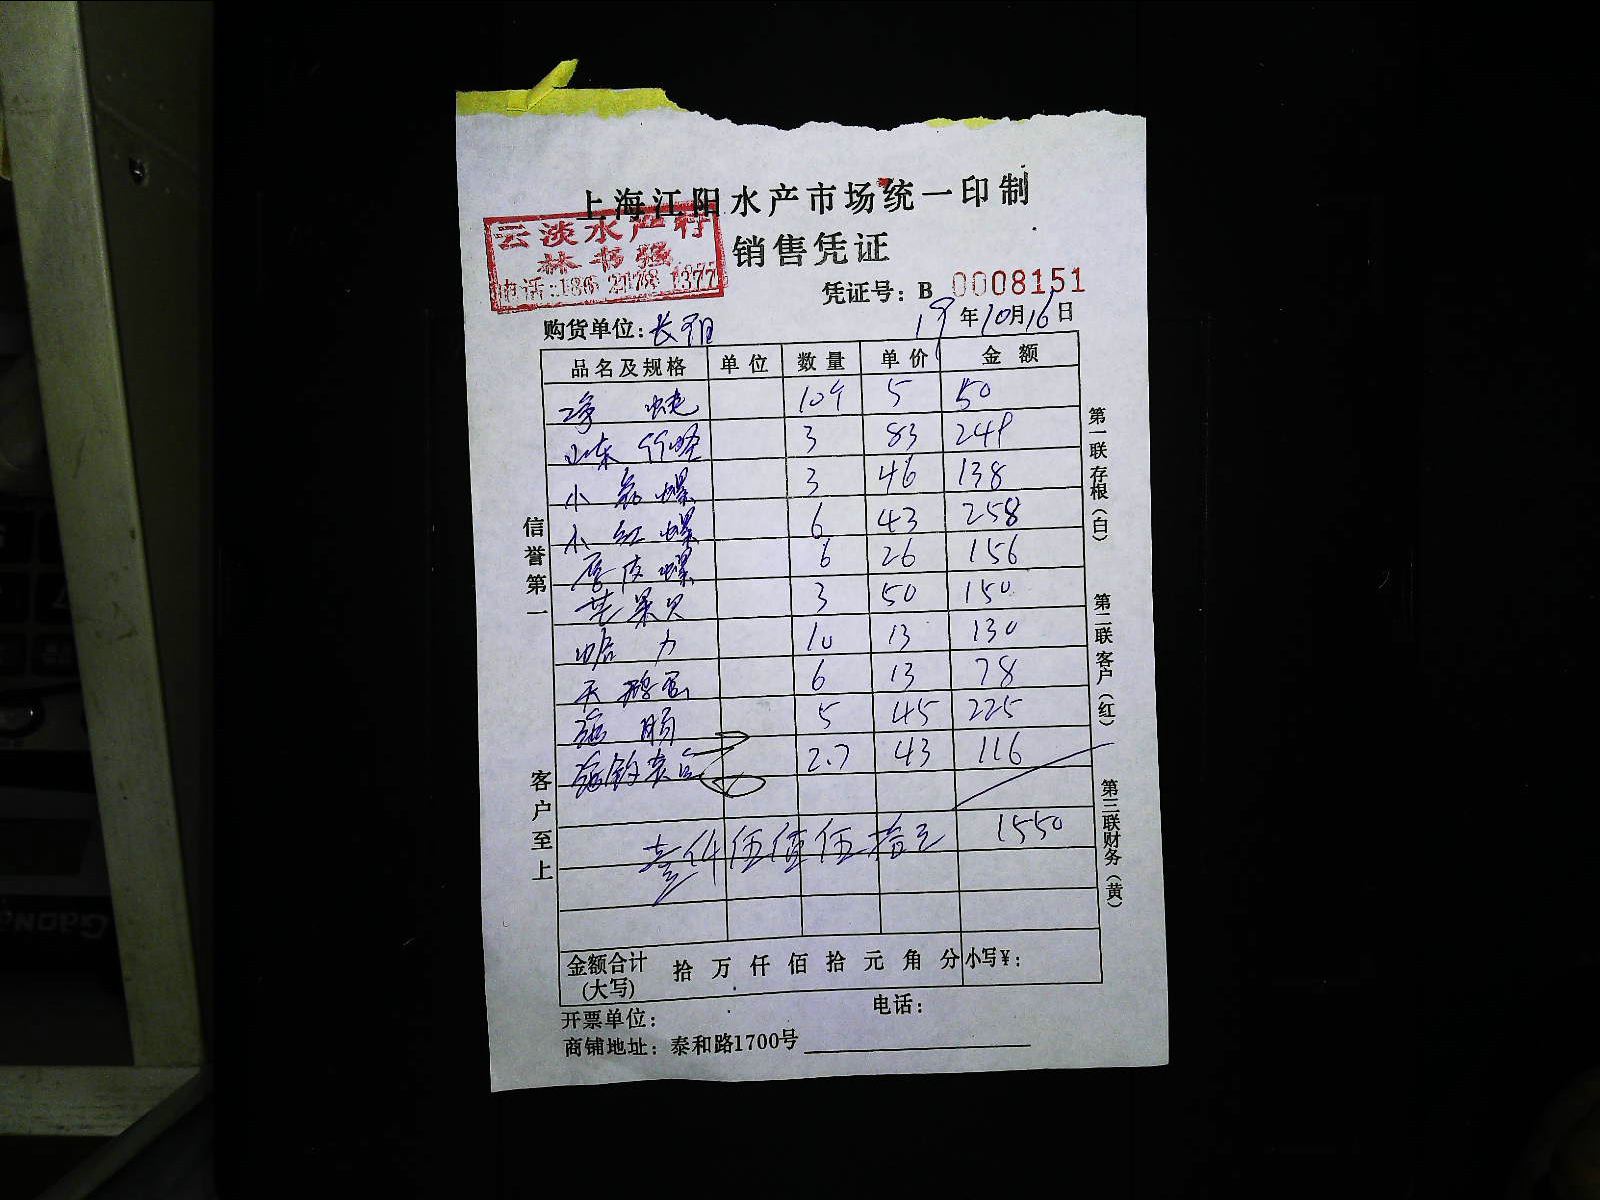 上海江阳水产市场统一印制
云淡水产行
林书强
电话:186 2178 1377
销售凭证
凭证号: B 0008151
购货单位: 长阳
19年10月16日
品名及规格 单位 数量 单价 金额
净 蚝 10个 5 50
山东 竹蛏 3 83 249
小 螺 3 46 138
小 红 螺 6 43 258
皮 螺 6 26 156
苹果贝 3 50 150
蛤 力 10 13 130
天鹅蛋 6 13 78
海 肠 5 45 225
海 2.7 43 116
壹仟伍佰伍拾元 1550
金额合计(大写) 拾 万 仟 佰 拾 元 角 分 小写¥:
开票单位: 电话:
商铺地址: 泰和路1700号
信誉第一
客户至上
第一联 存根(白)
第二联 客户(红)
第三联 财务(黄)
Gaon